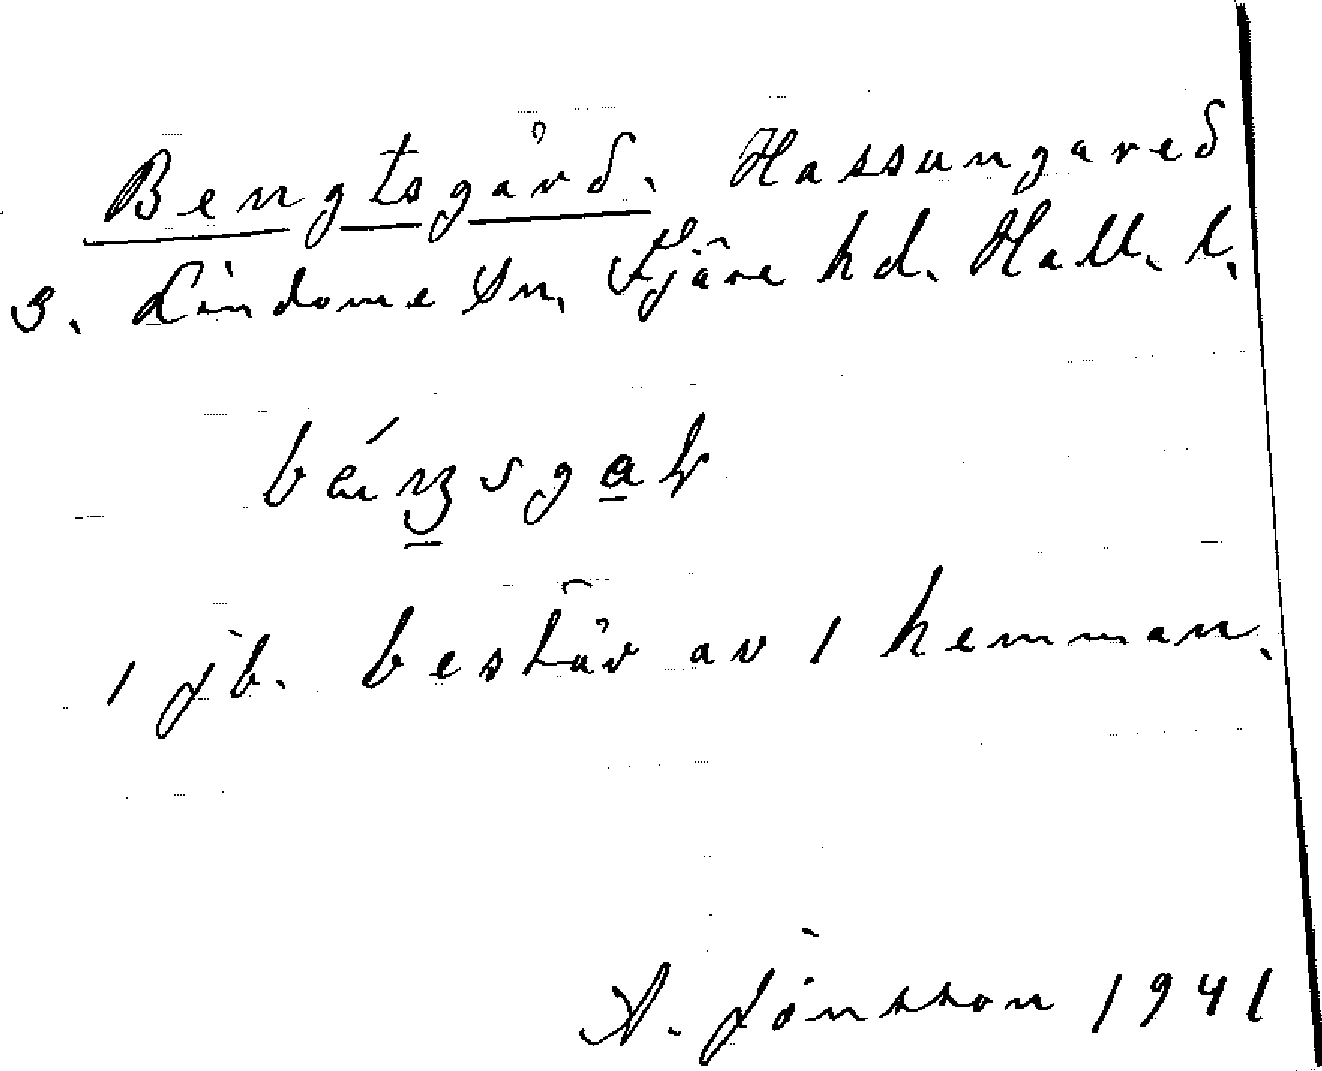 Bengtsgård. Hassungared
3. Lindome Sn, Fjäre hd. Hall. l.
1 jb. består av 1 hemman.
A. Jönsson 1941